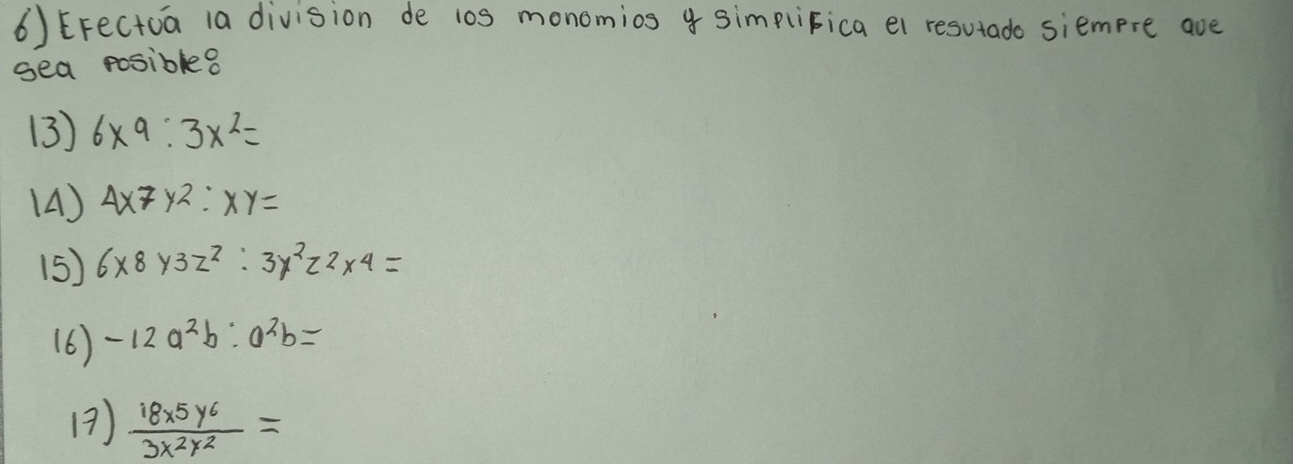 6) Efectúa la division de los monomios y simplifica el resutado siempre que
sea posible:
13) 6x9 : 3x²=
14) 4x7 y2 : xy=
15) 6x8 y3z² : 3y²z2x4 =
16) -12 a²b : a²b=
17) 18x5 y6 / 3x2y2 =